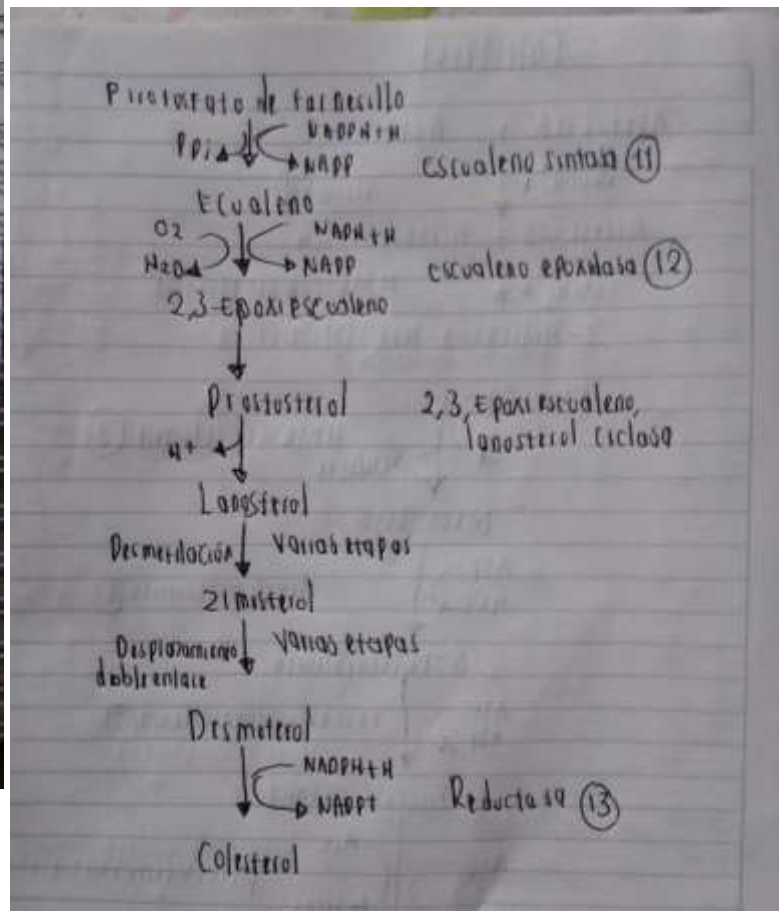 Pirofosfato de farnesillo
PPi NADPH+H
NADP escualeno sintasa 11
Ecualeno
O2 NADPH+H
H2O NADP escualeno epoxidasa 12
2,3-Epoxi escualeno
Prostosterol 2,3, Epoxi escualeno,
H+ lanosterol ciclasa
Lanosterol
Desmetilación Varias etapas
21mosterol
Desplazamiento Varias etapas
doble enlace
Desmoterol
NADPH+H
NADPT Reductasa 13
Colesterol